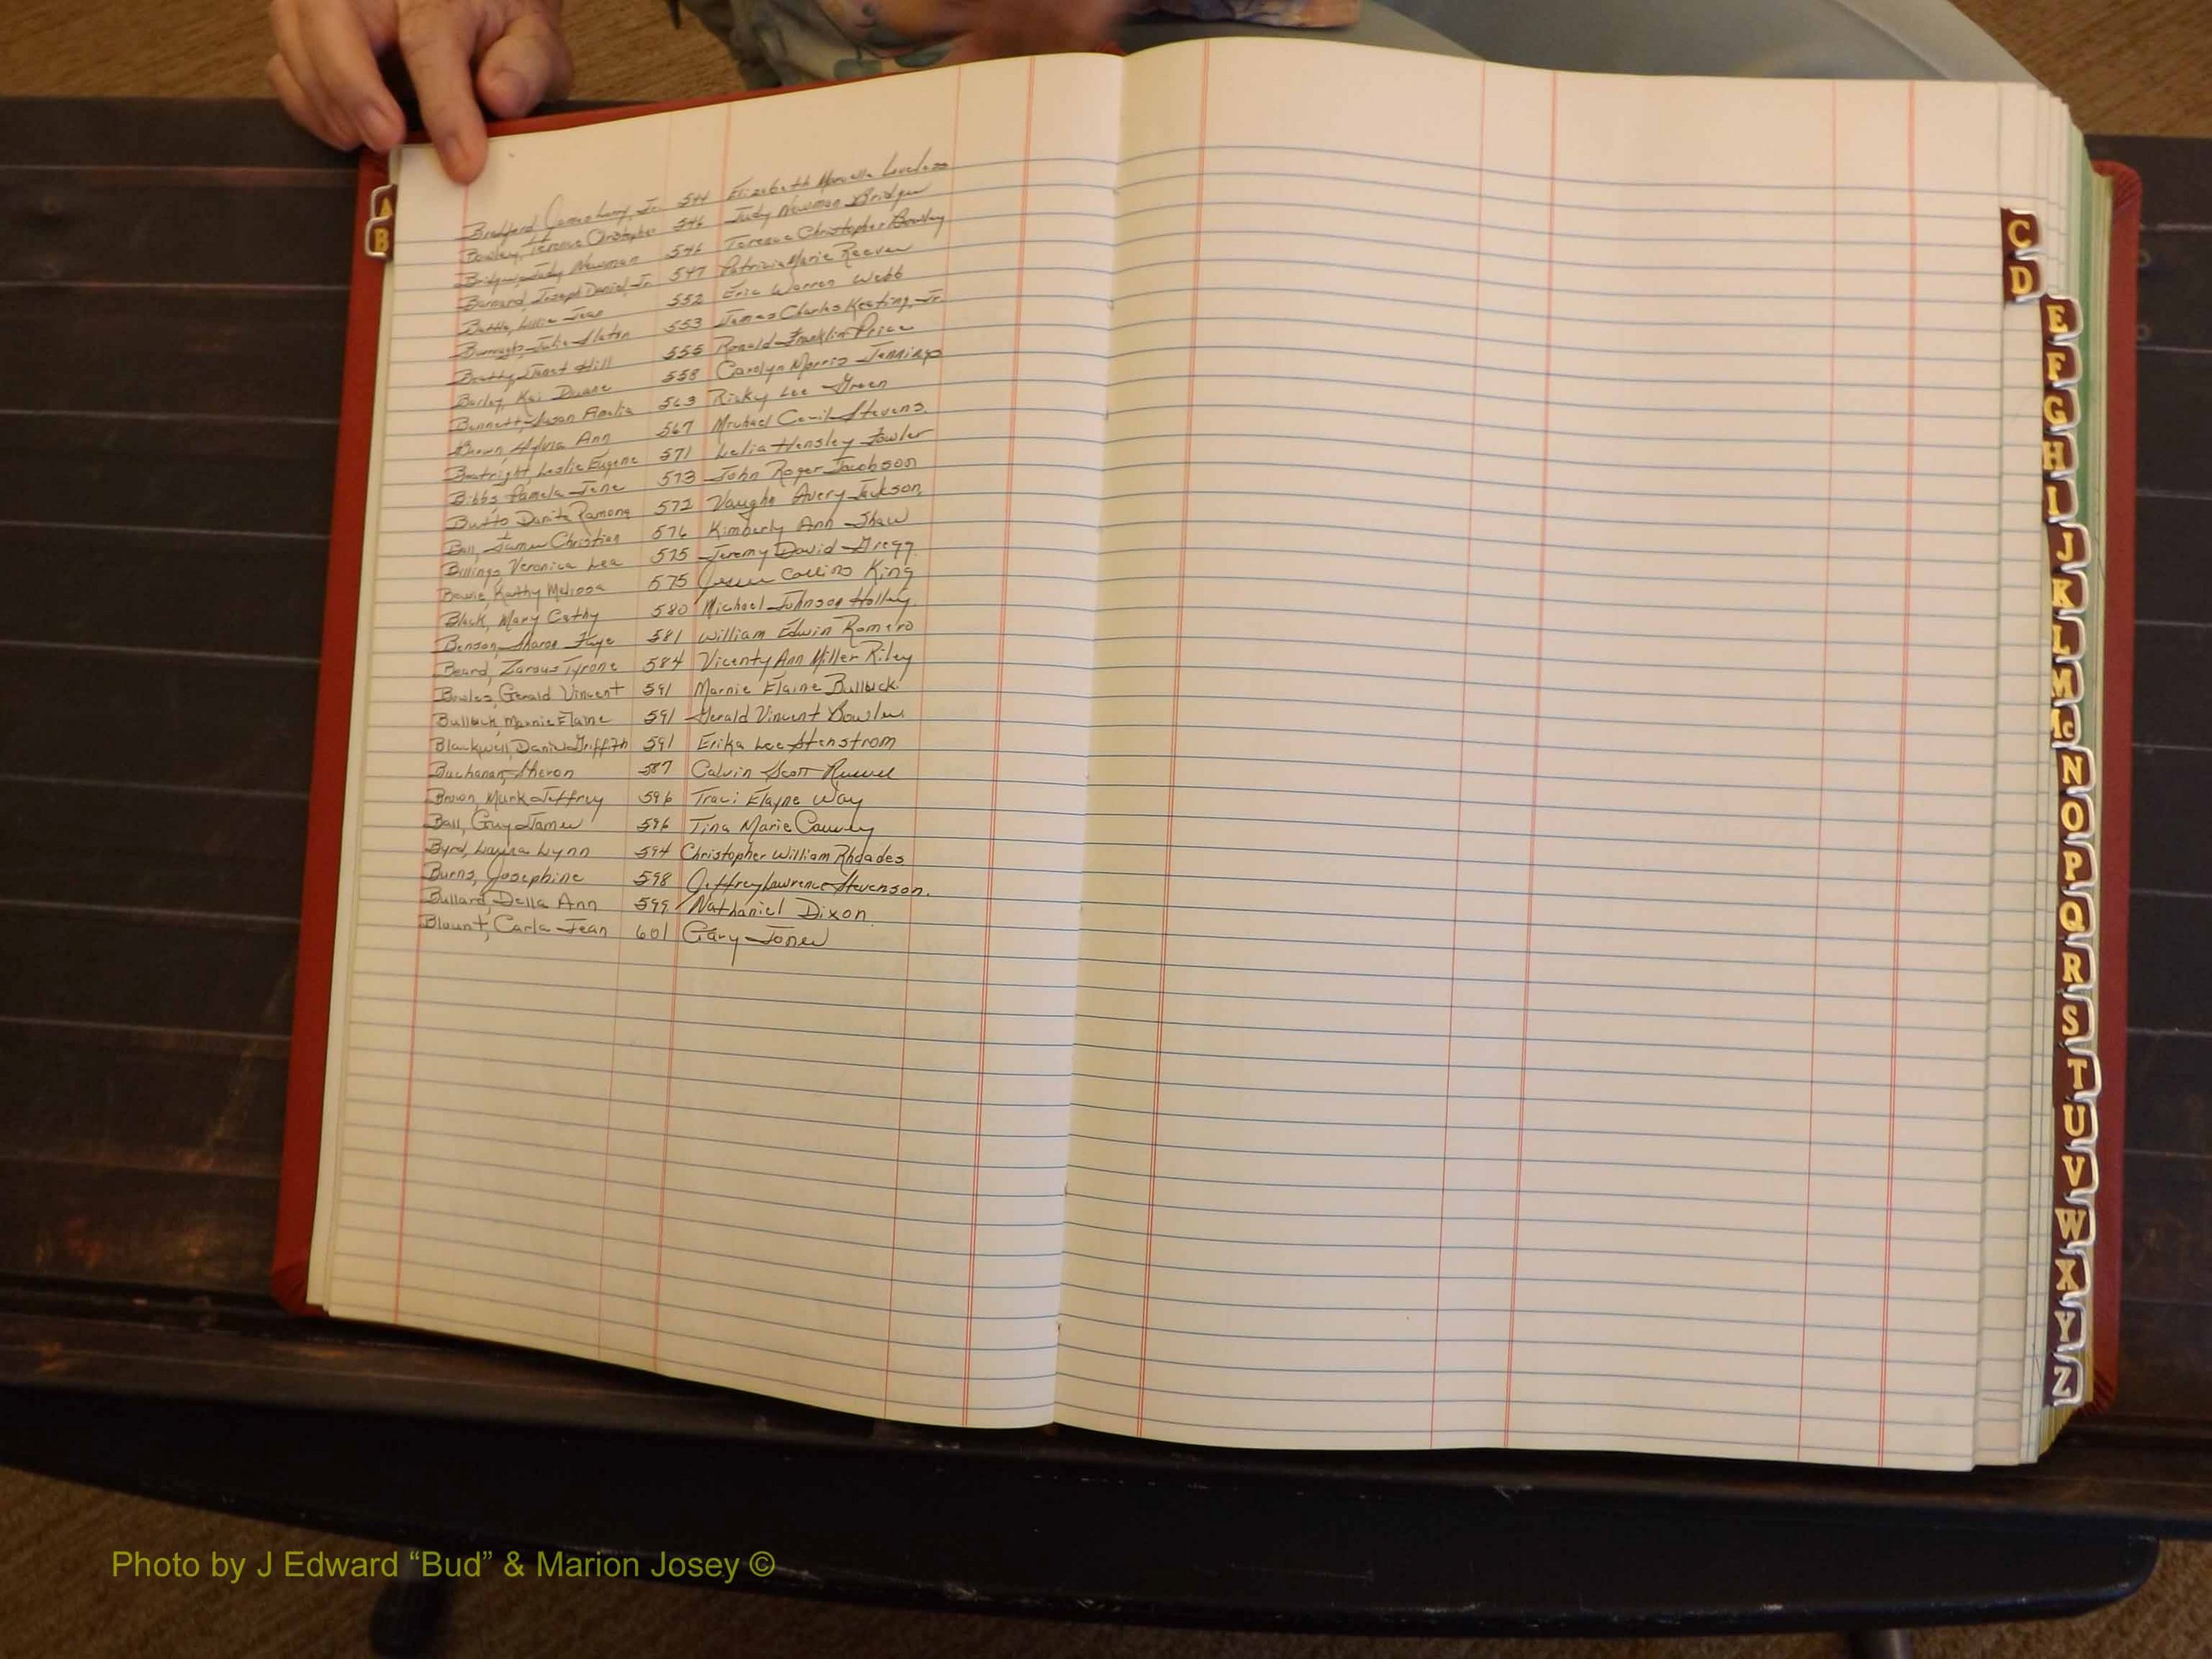 Bradford, James Larry, Jr. 544 Elizabeth Marcella Loveless
Bowley, Terence Christopher 546 Judy Newman Bridger
Bridger, Judy Newman 546 Terence Christopher Bowley
Barnard, Joseph Daniel, Jr. 547 Patricia Marie Reeves
Battle, Lillie Jean 552 Eric Warren Webb
Burroughs, Julie Slaton 553 James Charles Keating, Jr.
Beatty, Janet Hill 555 Ronald Franklin Price
Barley, Kai Duane 558 Carolyn Morris Jennings
Bennett, Susan Amelia 563 Ricky Lee Green
Brown, Sylvia Ann 567 Michael Cecil Stevens
Boatright, Leslie Eugene 571 Lelia Hensley Fowler
Bibbs, Pamela Jene 573 John Roger Jacobson
Butts, Danita Ramona 572 Vaughn Avery Jackson
Ball, James Christian 576 Kimberly Ann Shaw
Billings, Veronica Lea 575 Jeremy David Gregg
Bowie, Kathy Melissa 575 Collins King
Black, Mary Cathy 580 Michael Johnson Holley
Benson, Sharon Faye 581 William Edwin Romero
Beard, Zarous Tyrone 584 Vicenty Ann Miller Riley
Bowles, Gerald Vincent 591 Marnie Elaine Bullock
Bullock, Marnie Elaine 591 Gerald Vincent Bowles
Blackwell, Daniel Griffith 591 Erika Lee Stenstrom
Buchanan, Sharon 587 Calvin Scott Russell
Brown, Mark Jeffrey 596 Traci Elayne Way
Ball, Guy James 596 Tina Marie Cauley
Byrd, Laura Lynn 594 Christopher William Rhoades
Burns, Josephine 598 Jeffrey Lawrence Stevenson
Bullard, Della Ann 599 Nathaniel Dixon
Blount, Carla Jean 601 Gary Jones
A
B
C
D
E
F
G
H
I
J
K
L
M
Mc
N
O
P
Q
R
S
T
U
V
W
X
Y
Z
Photo by J Edward “Bud” & Marion Josey ©